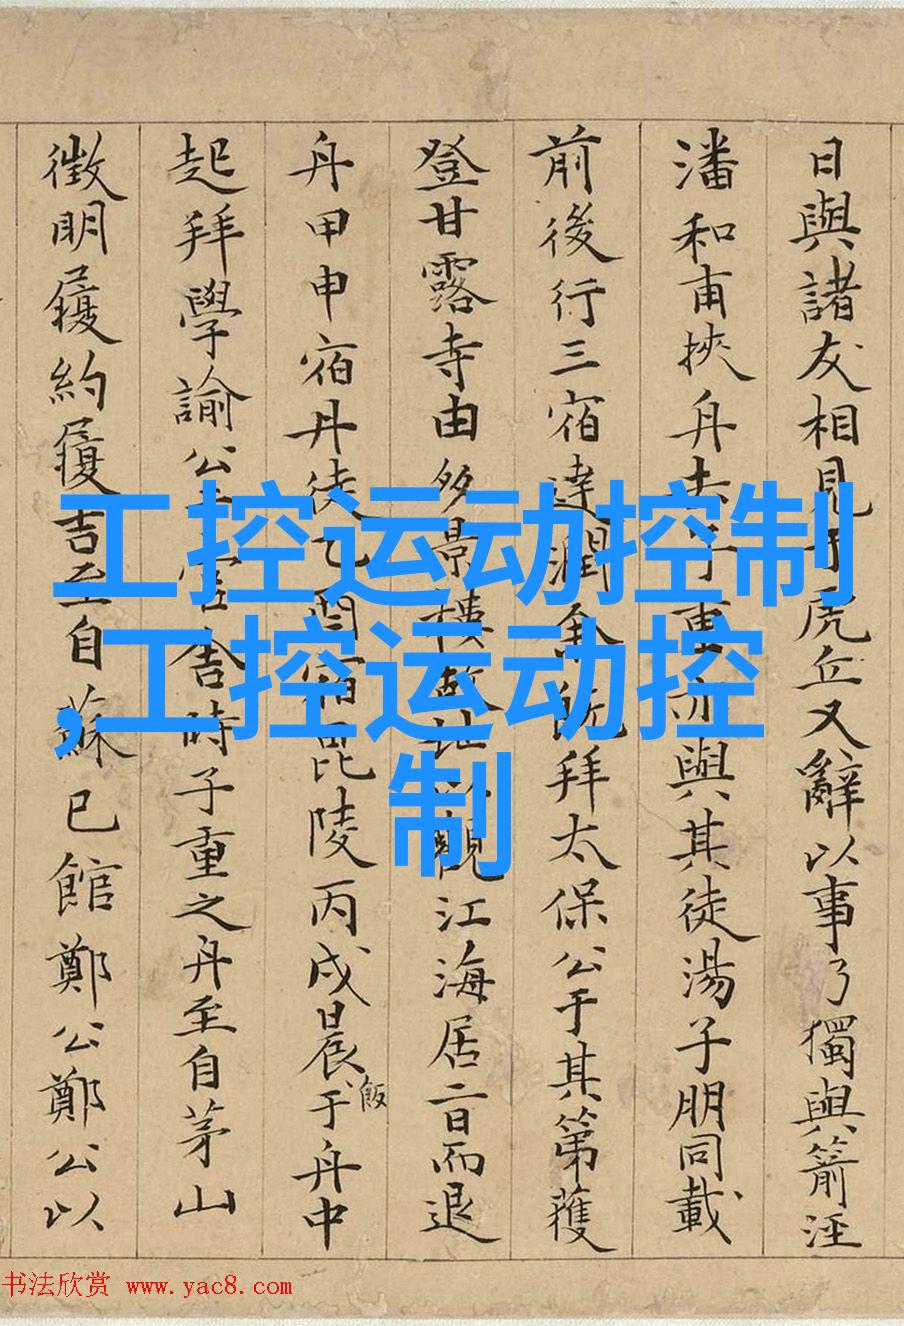 日與諸友相見于虎丘又辭以事乃獨與箭涇
潘和甫挾舟去子重亦與其徒湯子朋同載
前後行三宿達潤余既拜太保公于其第獲
登甘露寺由多景樓故址以觀江海居二日而退
舟甲申宿丹徒乙丣宿毘陵丙戌晨飯于舟中
起拜學諭公于官舍時子重之舟至自茅山
徵明履約履吉至自蘇已館鄭公鄭公以
工控运动控制
,工控运动控
制
书法欣赏 www.yac8.com